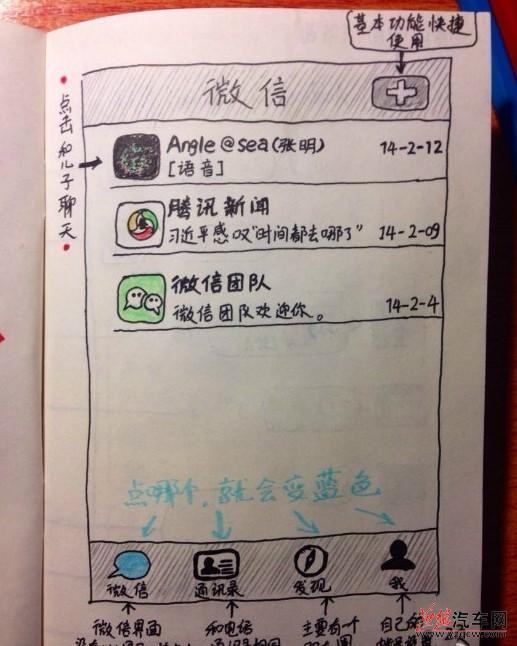 基本功能快捷
使用
微信
点击和儿子聊天
Angle@sea(张明)
14-2-12
[语音]
腾讯新闻
习近平感叹“时间都去哪了”
14-2-09
微信团队
微信团队欢迎你。
14-2-4
点哪个,就会变蓝色
微信
通讯录
发现
我
微信界面
和电话
主要有一个
自己的
汽车网